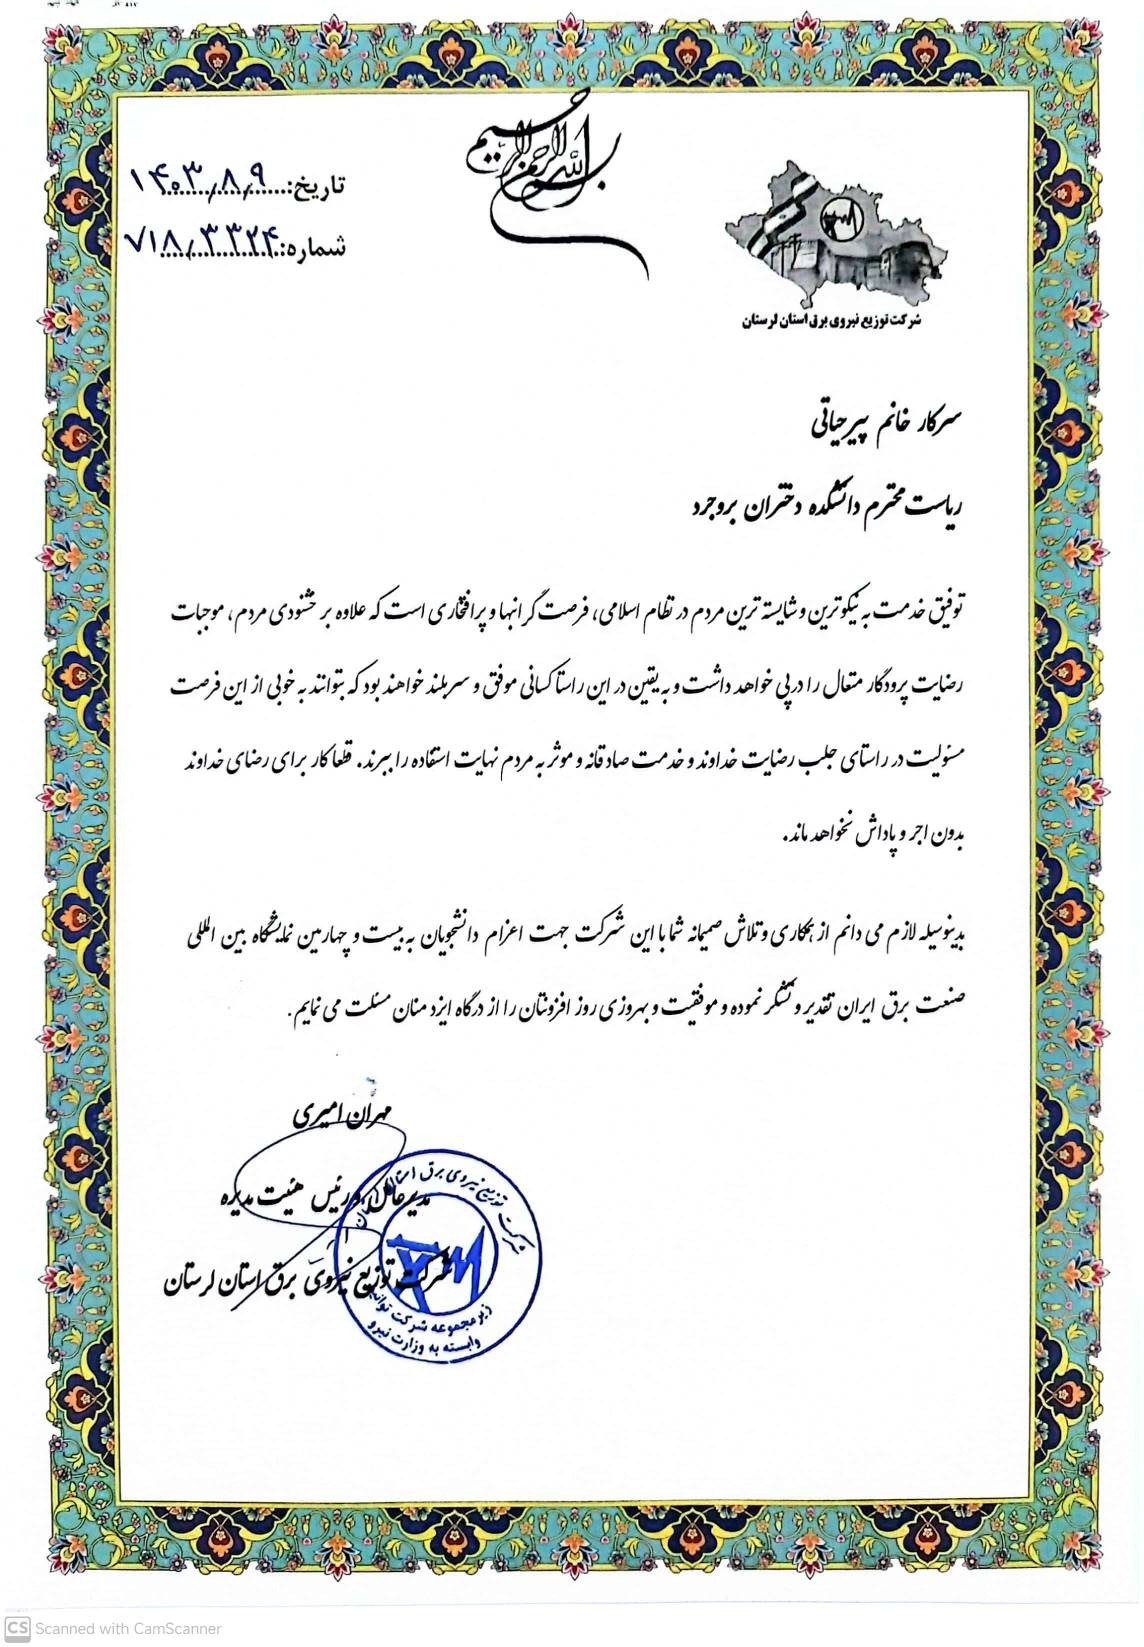 بسم الله الرحمن الرحیم
تاریخ: ۱۴۰۳/۸/۹
شماره: ۷۱۸/۳۳۲۴
شرکت توزیع نیروی برق استان لرستان
سرکار خانم پیرحیاتی
ریاست محترم دانشکده دختران بروجرد
توفیق خدمت به نیکوترین و شایسته ترین مردم در نظام اسلامی، فرصت گرانبها و پرافتخاری است که علاوه بر خشنودی مردم، موجبات
رضایت پرودگار متعال را در پی خواهد داشت و به یقین در این راستا کسانی موفق و سربلند خواهند بود که بتوانند به خوبی از این فرصت
مسئولیت در راستای جلب رضایت خداوند و خدمت صادقانه و موثر به مردم نهایت استفاده را ببرند. قطعا کار برای رضای خداوند
بدون اجر و پاداش نخواهد ماند.
بدینوسیله لازم می دانم از همکاری و تلاش صمیمانه شما با این شرکت جهت اعزام دانشجویان به بیست و چهارمین نمایشگاه بین المللی
صنعت برق ایران تقدیر و تشکر نموده و موفقیت و بهروزی روز افزونتان را از درگاه ایزد منان مسئلت می نمایم.
مهران امیری
مدیرعامل و رئیس هیئت مدیره
شرکت توزیع نیروی برق استان لرستان
شرکت توزیع نیروی برق
زیر مجموعه شرکت
وابسته به وزارت نیرو
CS Scanned with CamScanner